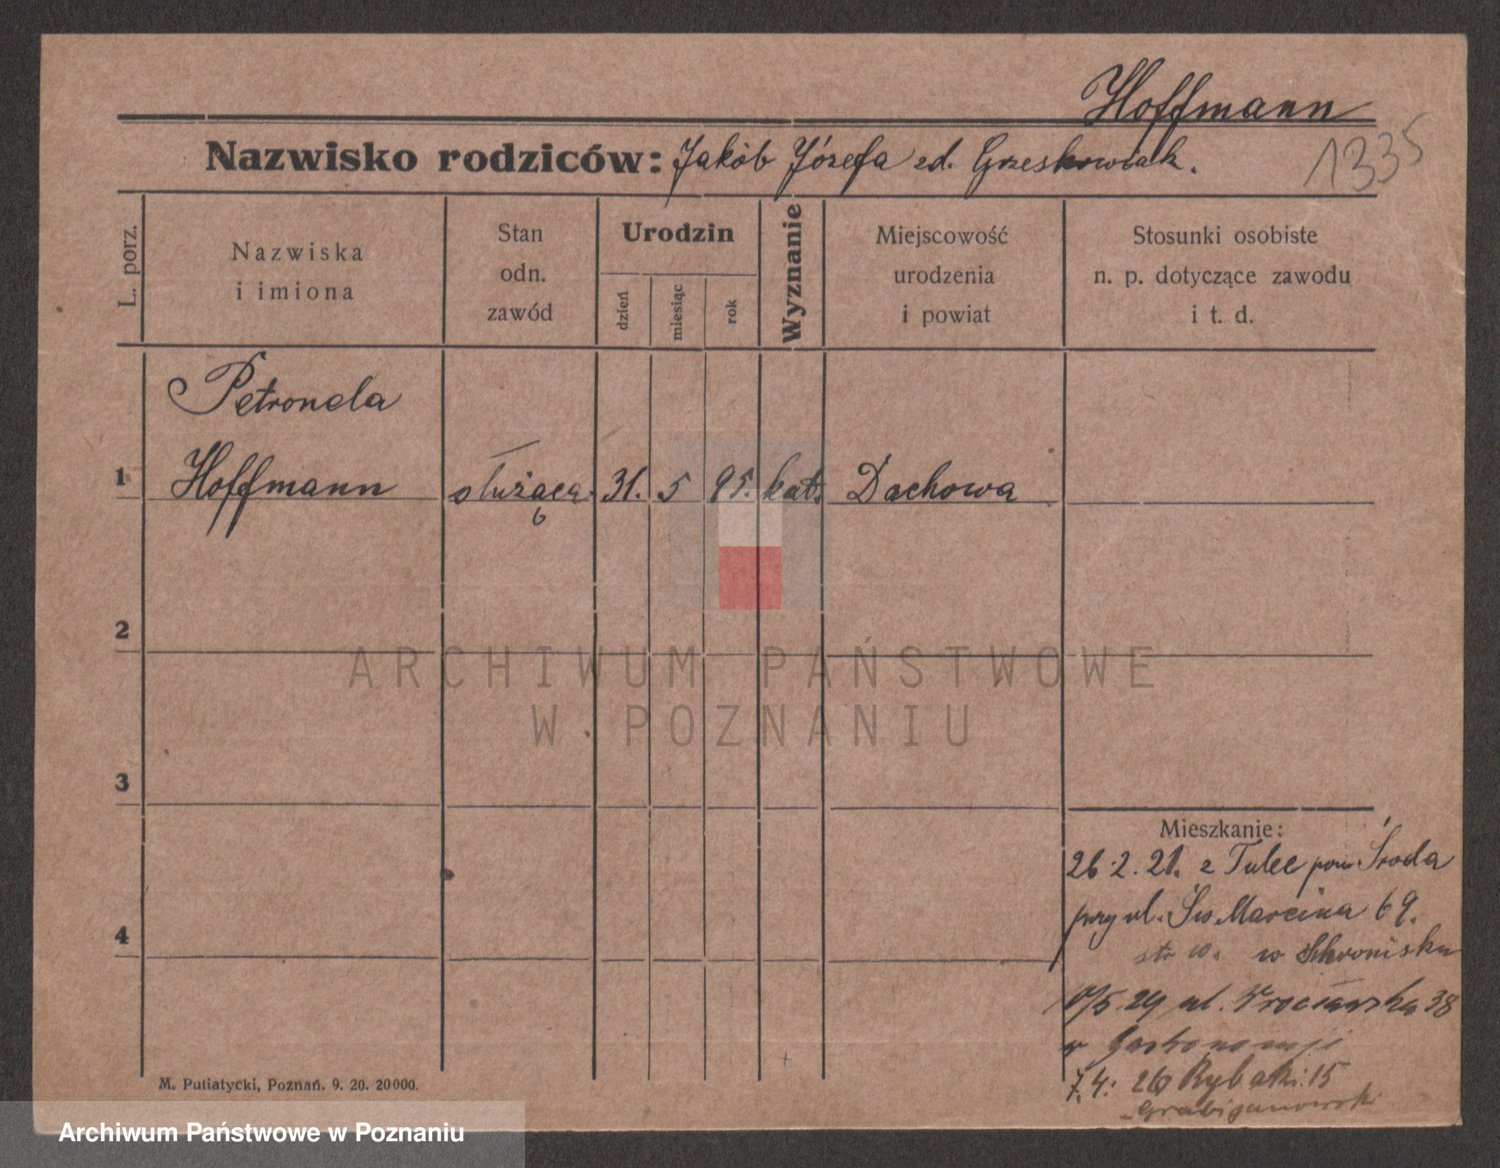 Hoffmann
Nazwisko rodziców: Jakób Józefa zd. Grzeskowiak.
1335
L. porz.
Nazwiska
i imiona
Stan
odn.
zawód
Urodzin
dzień
miesiąc
rok
Wyznanie
Miejscowość
urodzenia
i powiat
Stosunki osobiste
n. p. dotyczące zawodu
i t. d.
Petronela
1 Hoffmann służąca. 31. 5 95. kat. Dachowa
2
ARCHIWUM PAŃSTWOWE
W POZNANIU
3
Mieszkanie:
26.2.21. z Tulec pow Środa
przy ul. Św. Marcina 69.
4
w Schronisku
ul. Wrocławska 38
7.4: 26 Rybaki 15
M. Putiatycki, Poznań. 9. 20. 20000.
Archiwum Państwowe w Poznaniu